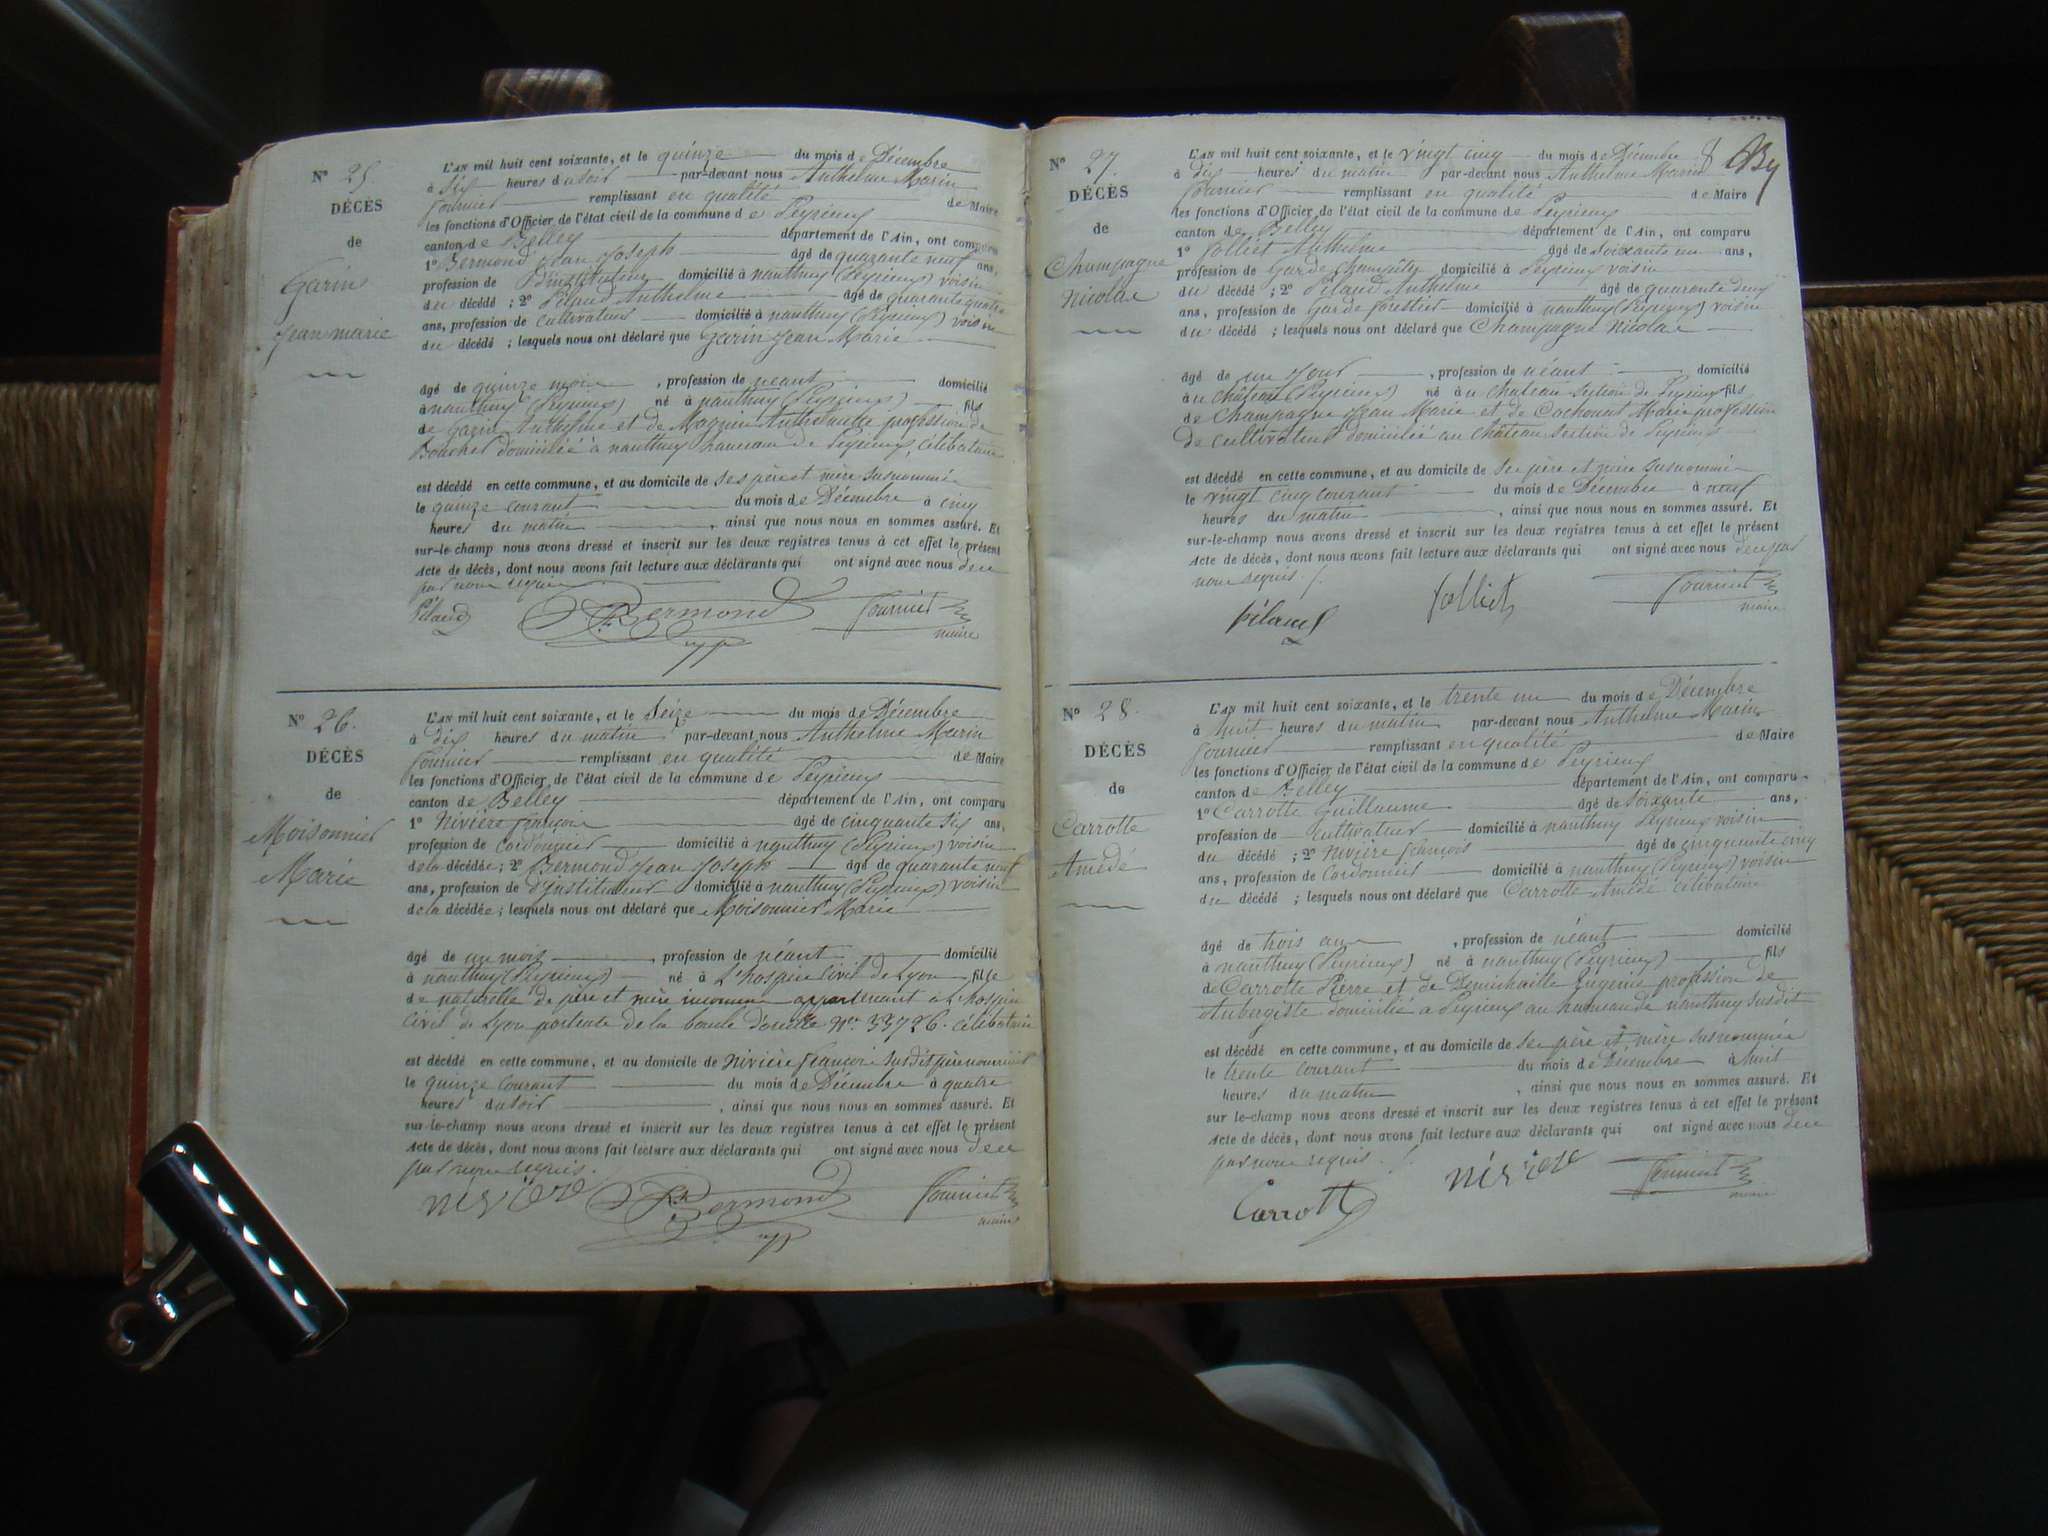 N° 25.
DÉCÈS
de
Garin
Jean marie
L'AN mil huit cent soixante, et le quinze du mois de Décembre
à six heures du soir par-devant nous Anthelme Marin
Fournier remplissant en qualité de Maire
les fonctions d'Officier de l'état civil de la commune de Peyrieux
canton de Belley département de l'Ain, ont comparu
1° Bermond Jean Joseph âgé de quarante neuf ans,
profession de d'instituteur domicilié à nanthuy (Peyrieux) voisin
du décédé ; 2° Pilaud Anthelme âgé de quarante quatre
ans, profession de cultivateur domicilié à nanthuy (Peyrieux) voisin
du décédé ; lesquels nous ont déclaré que Garin Jean Marie
âgé de quinze mois , profession de néant domicilié
à nanthuy (Peyrieux) né à nanthuy (Peyrieux) fils
de Garin Anthelme et de Magnin Anthelmette profession de
Boucher domicilié à nanthuy hameau de Peyrieux, célibataire
est décédé en cette commune, et au domicile de ses père et mère susnommés
le quinze courant du mois de Décembre à cinq
heures du matin , ainsi que nous nous en sommes assuré. Et
sur-le-champ nous avons dressé et inscrit sur les deux registres tenus à cet effet le présent
Acte de décès, dont nous avons fait lecture aux déclarants qui ont signé avec nous de ce
par nous requis
Pilaud Bermond Fournier
maire
N° 26.
DÉCÈS
de
Moisonnier
Marie
L'AN mil huit cent soixante, et le seize du mois de Décembre
à dix heures du matin par-devant nous Anthelme Marin
Fournier remplissant en qualité de Maire
les fonctions d'Officier de l'état civil de la commune de Peyrieux
canton de Belley département de l'Ain, ont comparu
1° Nivière françois âgé de cinquante six ans,
profession de Cordonnier domicilié à nanthuy (Peyrieux) voisin
de la décédée ; 2° Bermond Jean Joseph âgé de quarante neuf
ans, profession de d'instituteur domicilié à nanthuy (Peyrieux) voisin
de la décédée ; lesquels nous ont déclaré que Moisonnier Marie
âgé de un mois , profession de néant domicilié
à nanthuy (Peyrieux) né à L'hospice Civil de Lyon fille
de naturelle de père et mère inconnus appartenant à L'hospice
civil de Lyon portente de la boucle d'oreille N° 33726. célibataire
est décédé en cette commune, et au domicile de Nivière françois susdit père nourricier
le quinze courant du mois de Décembre à quatre
heures du soir , ainsi que nous nous en sommes assuré. Et
sur-le-champ nous avons dressé et inscrit sur les deux registres tenus à cet effet le présent
Acte de décès, dont nous avons fait lecture aux déclarants qui ont signé avec nous de ce
par nous requis.
nivière Bermond Fournier
maire
N° 27.
DÉCÈS
de
Champagne
Nicolas
L'AN mil huit cent soixante, et le vingt cinq du mois de Décembre 8
à dix heures du matin par-devant nous Anthelme Marin
Fournier remplissant en qualité de Maire
les fonctions d'Officier de l'état civil de la commune de Peyrieux
canton de Belley département de l'Ain, ont comparu
1° Jolliet Anthelme âgé de soixante un ans,
profession de Garde Champêtre domicilié à Peyrieux voisin
du décédé ; 2° Pilaud Anthelme âgé de quarante deux
ans, profession de Garde forestier domicilié à nanthuy (Peyrieux) voisin
du décédé ; lesquels nous ont déclaré que Champagne Nicolas
âgé de un jour , profession de néant domicilié
à u château (Peyrieux) né à u château section de Peyrieux fils
de Champagne Jean Marie et de Cochonat Marie profession
de cultivateur domicilié au château section de Peyrieux
est décédé en cette commune, et au domicile de ses père et mère susnommés
le vingt cinq courant du mois de Décembre à neuf
heures du matin , ainsi que nous nous en sommes assuré. Et
sur-le-champ nous avons dressé et inscrit sur les deux registres tenus à cet effet le présent
Acte de décès, dont nous avons fait lecture aux déclarants qui ont signé avec nous de ce par
nous requis.
Pilaud Jolliet Fournier
maire
N° 28.
DÉCÈS
de
Carrotte
Amédé
L'AN mil huit cent soixante, et le trente un du mois de Décembre
à huit heures du matin par-devant nous Anthelme Marin
Fournier remplissant en qualité de Maire
les fonctions d'Officier de l'état civil de la commune de Peyrieux
canton de Belley département de l'Ain, ont comparu
1° Carrotte Guillaume âgé de soixante ans,
profession de cultivateur domicilié à nanthuy Peyrieux voisin
du décédé ; 2° Nivière françois âgé de cinquante cinq
ans, profession de Cordonnier domicilié à nanthuy (Peyrieux) voisin
du décédé ; lesquels nous ont déclaré que Carrotte Amédé célibataire
âgé de trois ans , profession de néant domicilié
à nanthuy (Peyrieux) né à nanthuy (Peyrieux) fils
de Carrotte Pierre et de Eugénie profession de
Aubergiste domicilié à Peyrieux au hameau de nanthuy susdit
est décédé en cette commune, et au domicile de ses père et mère susnommés
le trente courant du mois de Décembre à huit
heures du matin , ainsi que nous nous en sommes assuré. Et
sur-le-champ nous avons dressé et inscrit sur les deux registres tenus à cet effet le présent
Acte de décès, dont nous avons fait lecture aux déclarants qui ont signé avec nous de ce
par nous requis.
Carrott nivière Fournier
maire